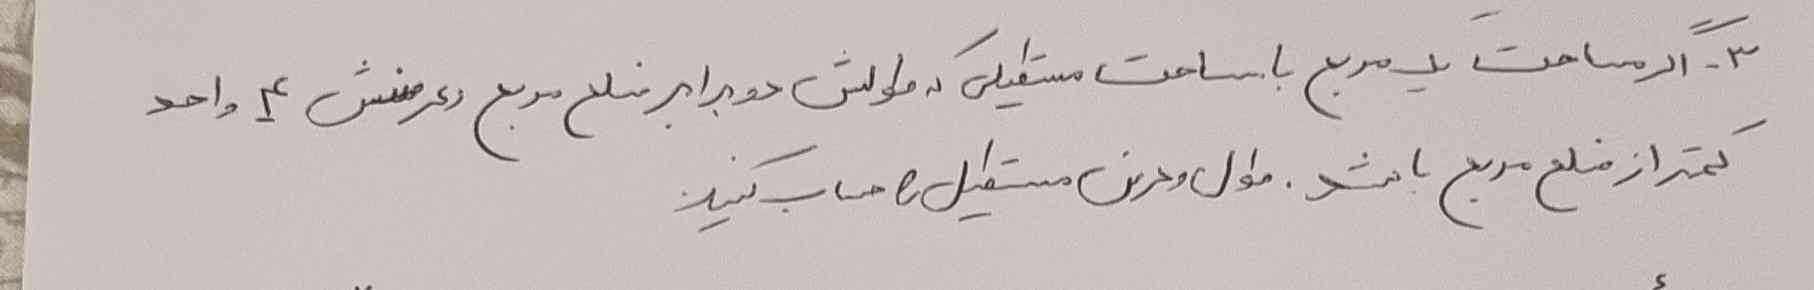 ۳- اگر مساحت یک مربع با مساحت مستطیلی که طولش دو برابر ضلع مربع و عرضش ۴ واحد
کمتر از ضلع مربع باشد. طول و عرض مستطیل را حساب کنید.